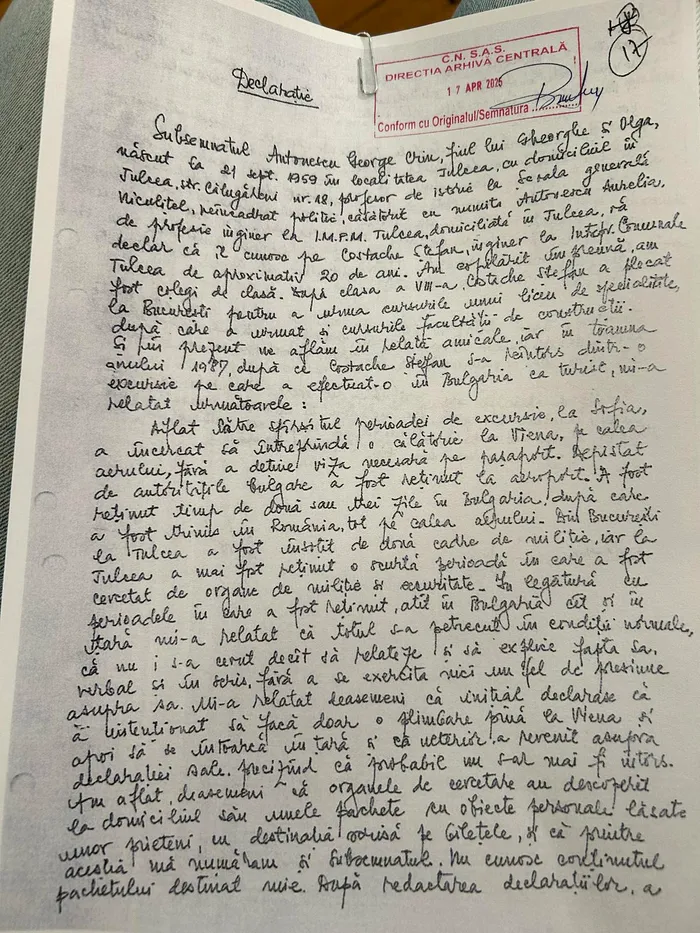 C.N.S.A.S.
DIRECȚIA ARHIVĂ CENTRALĂ
17 APR 2025
Conform cu Originalul/Semnătura
17
Declarație
Subsemnatul Antonescu George Crin, fiul lui Gheorghe și Olga,
născut la 21 sept. 1959 în localitatea Tulcea, cu domiciliul în
Tulcea, str. Călugăreni nr. 18, profesor de istorie la Școala generală
Niculițel, neîncadrat politic, căsătorit cu numita Antonescu Aurelia,
de profesie inginer la I.M.P.M. Tulcea, domiciliată în Tulcea, vă
declar că îl cunosc pe Costache Ștefan, inginer la Intepr. Comunale
Tulcea de aproximativ 20 de ani. Am copilărit împreună, am
fost colegi de clasă. După clasa a VIII-a, Costache Ștefan a plecat
la București pentru a urma cursurile unui liceu de specialitate,
după care a urmat și cursurile facultății de construcții.
Și în prezent ne aflăm în relații amicale, iar în toamna
anului 1987, după ce Costache Ștefan s-a reîntors dintr-o
excursie pe care a efectuat-o în Bulgaria ca turist, mi-a
relatat următoarele:
Aflat către sfîrșitul perioadei de excursie, la Sofia,
a încercat să întreprindă o călătorie la Viena, pe calea
aerului, fără a deține viza necesară pe pașaport. Depistat
de autoritățile bulgare a fost reținut la aeroport. A fost
reținut timp de două sau trei zile în Bulgaria, după care
a fost trimis în România, tot pe calea aerului. Din București
la Tulcea a fost însoțit de două cadre de miliție, iar la
Tulcea a mai fost reținut o scurtă perioadă în care a fost
cercetat de organe de miliție și securitate. În legătură cu
perioadele în care a fost reținut, atît în Bulgaria cît și în
țară mi-a relatat că totul s-a petrecut în condiții normale,
că nu i s-a cerut decît să relateze și să explice fapta sa,
verbal și în scris, fără a se exercita nici un fel de presiune
asupra sa. Mi-a relatat deasemeni că inițial declarase că
a intenționat să facă doar o plimbare pînă la Viena și
apoi să se întoarcă în țară și că ulterior a revenit asupra
declarației sale, precizînd că probabil nu s-ar mai fi întors.
Am aflat, deasemeni că organele de cercetare au descoperit
la domiciliul său unele pachete cu obiecte personale lăsate
unor prieteni, cu destinația scrisă pe bilețele, și că printre
aceștia mă număram și subsemnatul. Nu cunosc conținutul
pachetului destinat mie. După redactarea declarațiilor, a